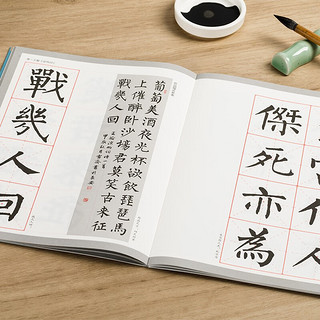 戰幾人回
葡萄美酒夜光杯欲飲琵琶馬
上催醉臥沙場君莫笑古來征
戰幾人回
作人
傑死亦為